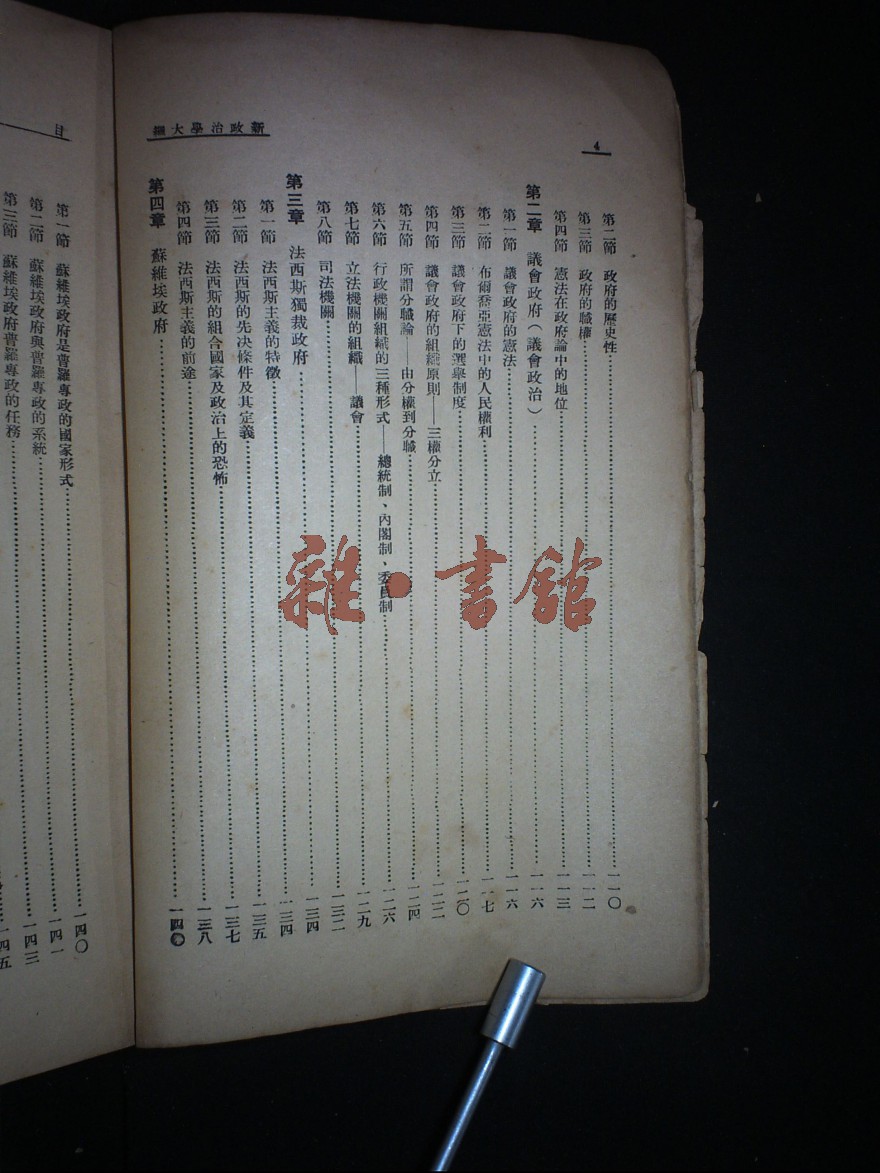 新政治學大綱
4
第二節　政府的歷史性…………一一〇
第三節　政府的職權…………一一二
第四節　憲法在政府論中的地位…………一一三
第二章　議會政府（議會政治）…………一一六
第一節　議會政府的憲法…………一一六
第二節　布爾喬亞憲法中的人民權利…………一一七
第三節　議會政府下的選舉制度…………一二〇
第四節　議會政府的組織原則——三權分立…………一二二
第五節　所謂分職論——由分權到分職…………一二四
第六節　行政機關組織的三種形式——總統制、內閣制、委員制…………一二六
第七節　立法機關的組織——議會…………一二九
第八節　司法機關…………一三二
第三章　法西斯獨裁政府…………一三四
第一節　法西斯主義的特徵…………一三四
第二節　法西斯的先決條件及其定義…………一三五
第三節　法西斯的組合國家及政治上的恐怖…………一三七
第四節　法西斯主義的前途…………一三八
第四章　蘇維埃政府…………一四〇
目
第一節　蘇維埃政府是普羅專政的國家形式…………一四〇
第二節　蘇維埃政府與普羅專政的系統…………一四一
第三節　蘇維埃政府普羅專政的任務…………一四三
一四五
雜·書館